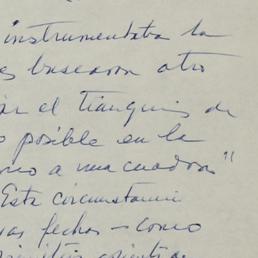 instrumentaba la
es buscaron otro
el tianguis de
o posible en la
como a una cuadra"
Esta circunstanci
as fechas - como